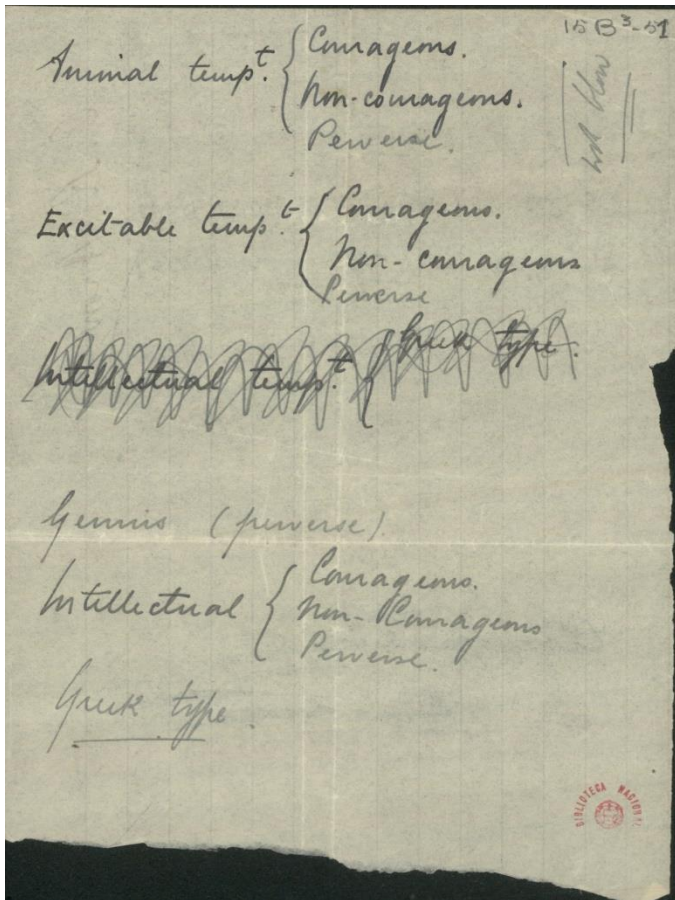 15 B³-51
Animal temp.t { Courageous.
Non-courageous.
Perverse.
Excitable temp.t { Courageous.
Non-courageous
Perverse
Intellectual temp.t { Greek type.
Genius (perverse)
Intellectual { Courageous.
Non-Courageous
Perverse.
Greek type.
BIBLIOTECA NACIONAL